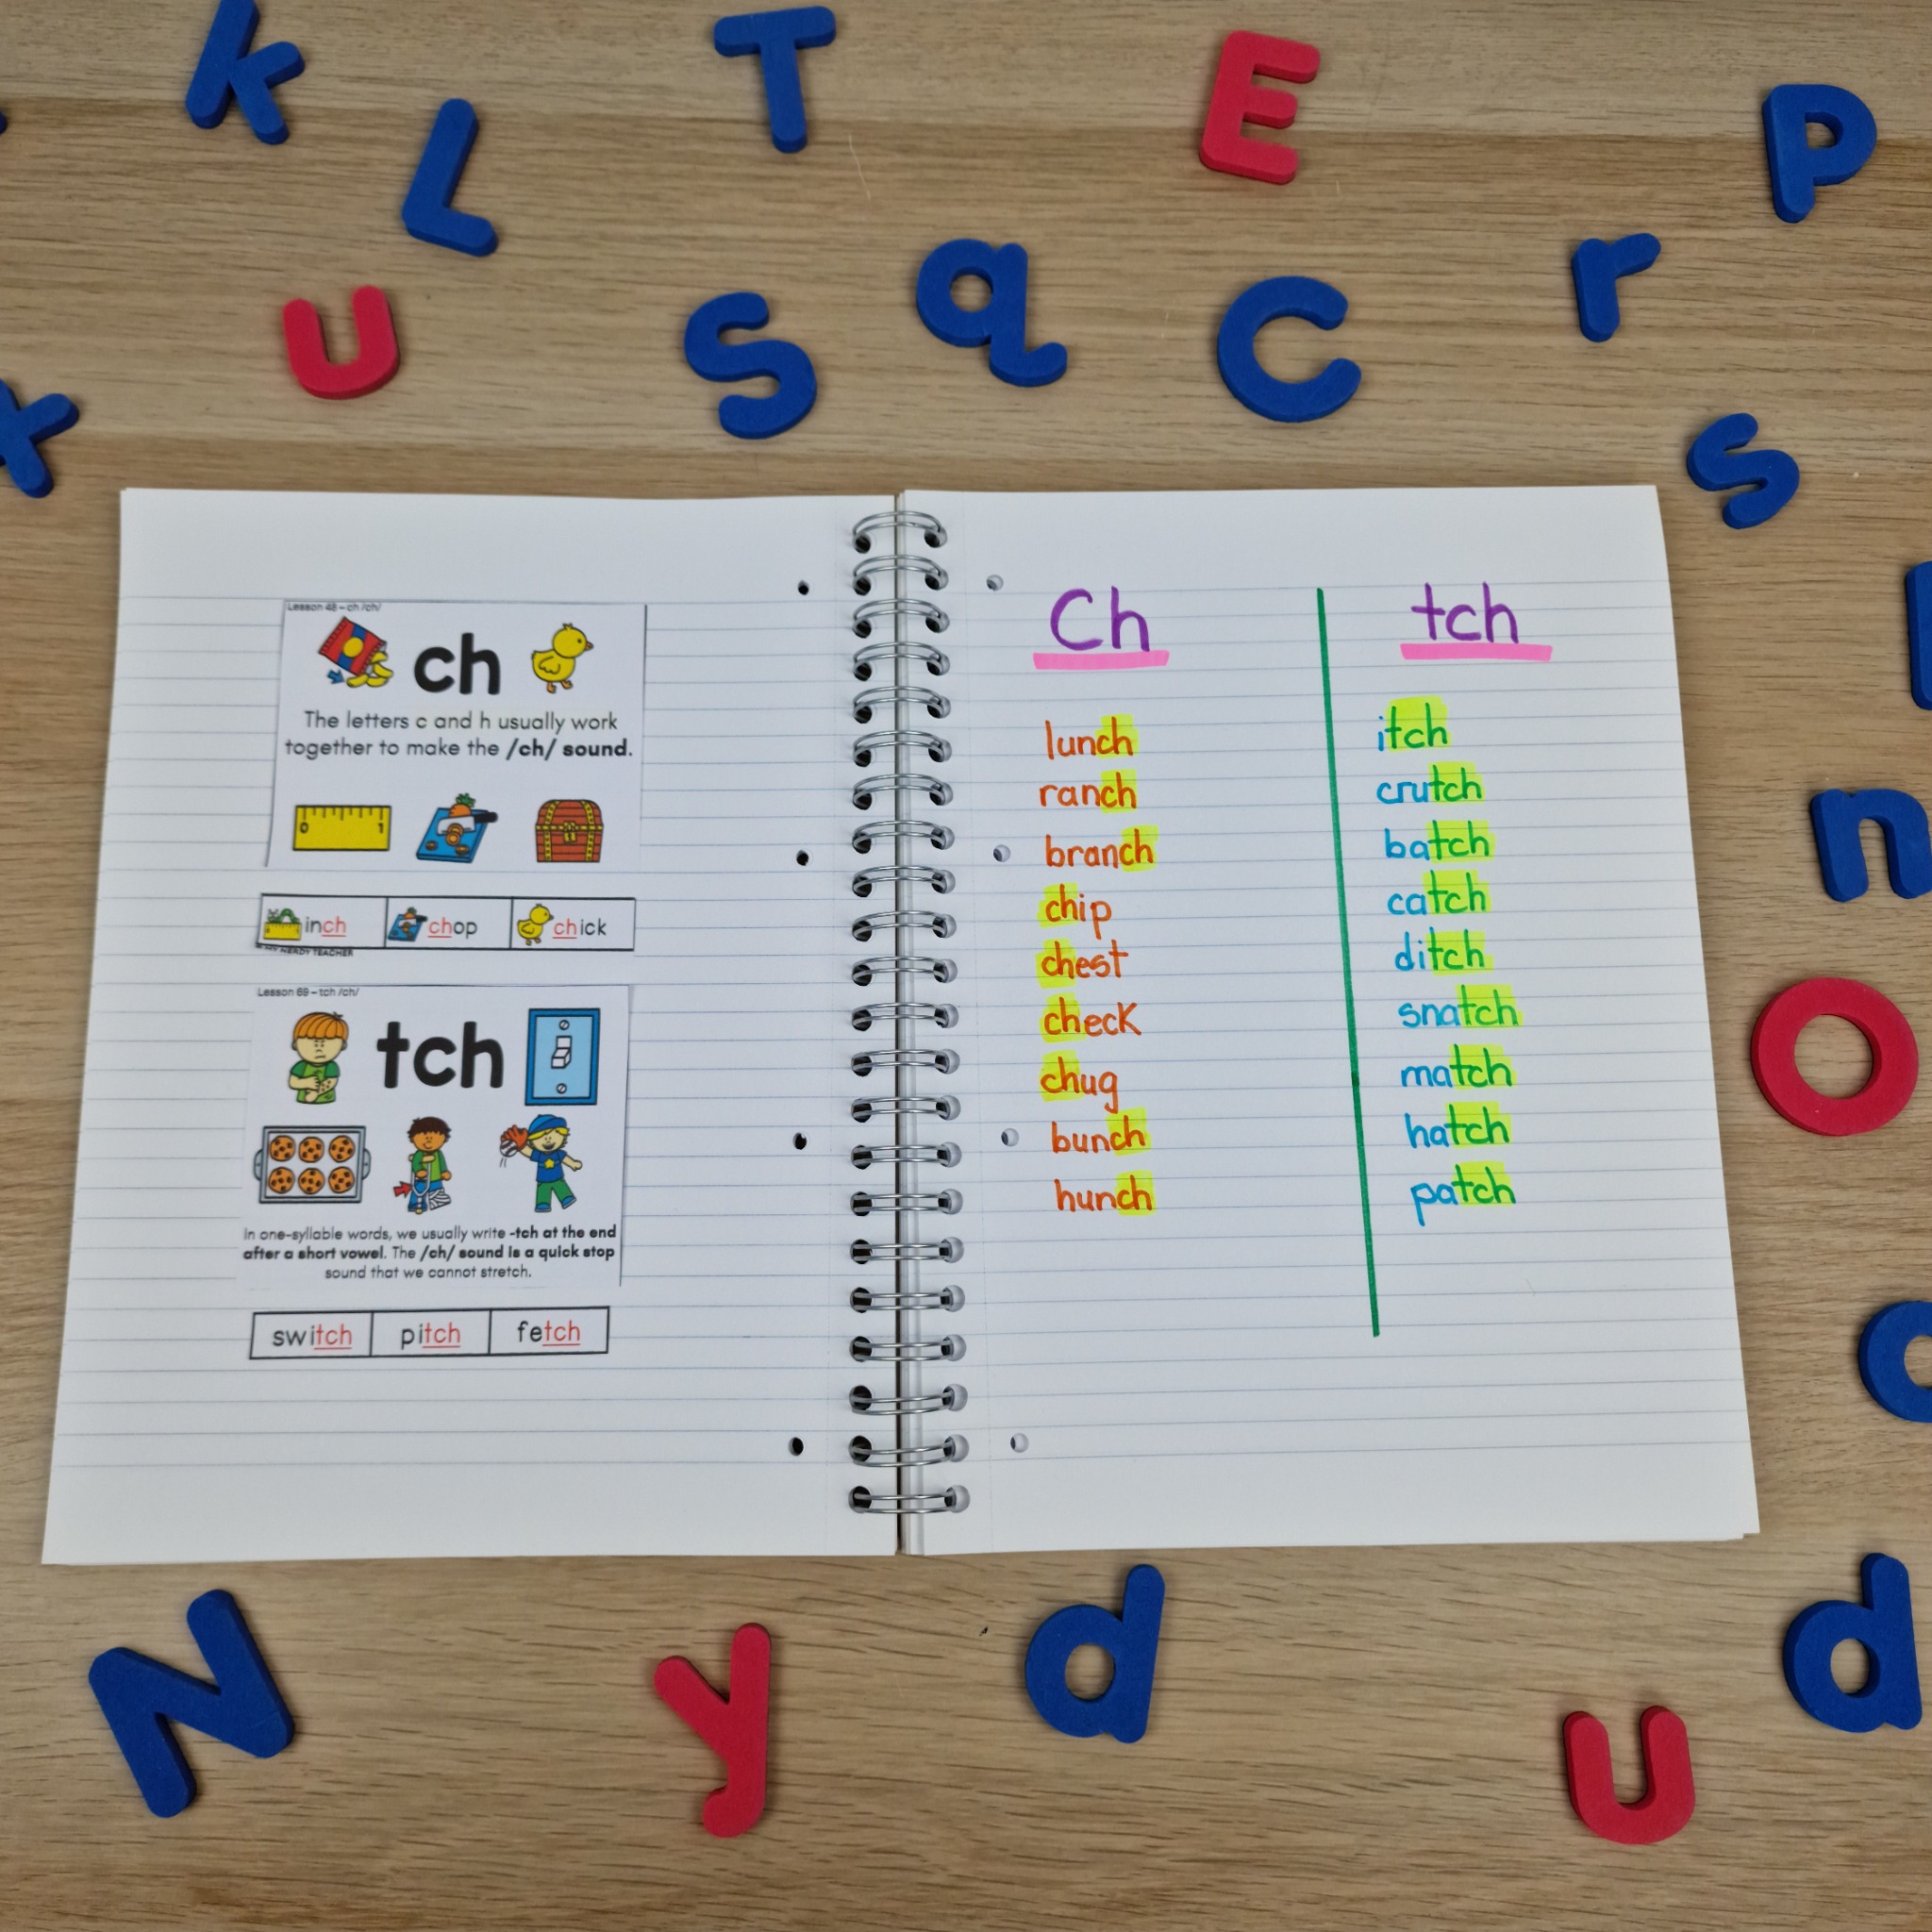 k
T
E
P
L
q
r
u
S
C
x
s
Lesson 48 – ch /ch/
ch
The letters c and h usually work
together to make the /ch/ sound.
0 1
inch chop chick
NERDY TEACHER
Lesson 69 – tch /ch/
tch
In one-syllable words, we usually write -tch at the end
after a short vowel. The /ch/ sound is a quick stop
sound that we cannot stretch.
switch pitch fetch
Ch
lunch
ranch
branch
chip
chest
check
chug
bunch
hunch
tch
itch
crutch
batch
catch
ditch
snatch
match
hatch
patch
n
O
N
y
d
d
u